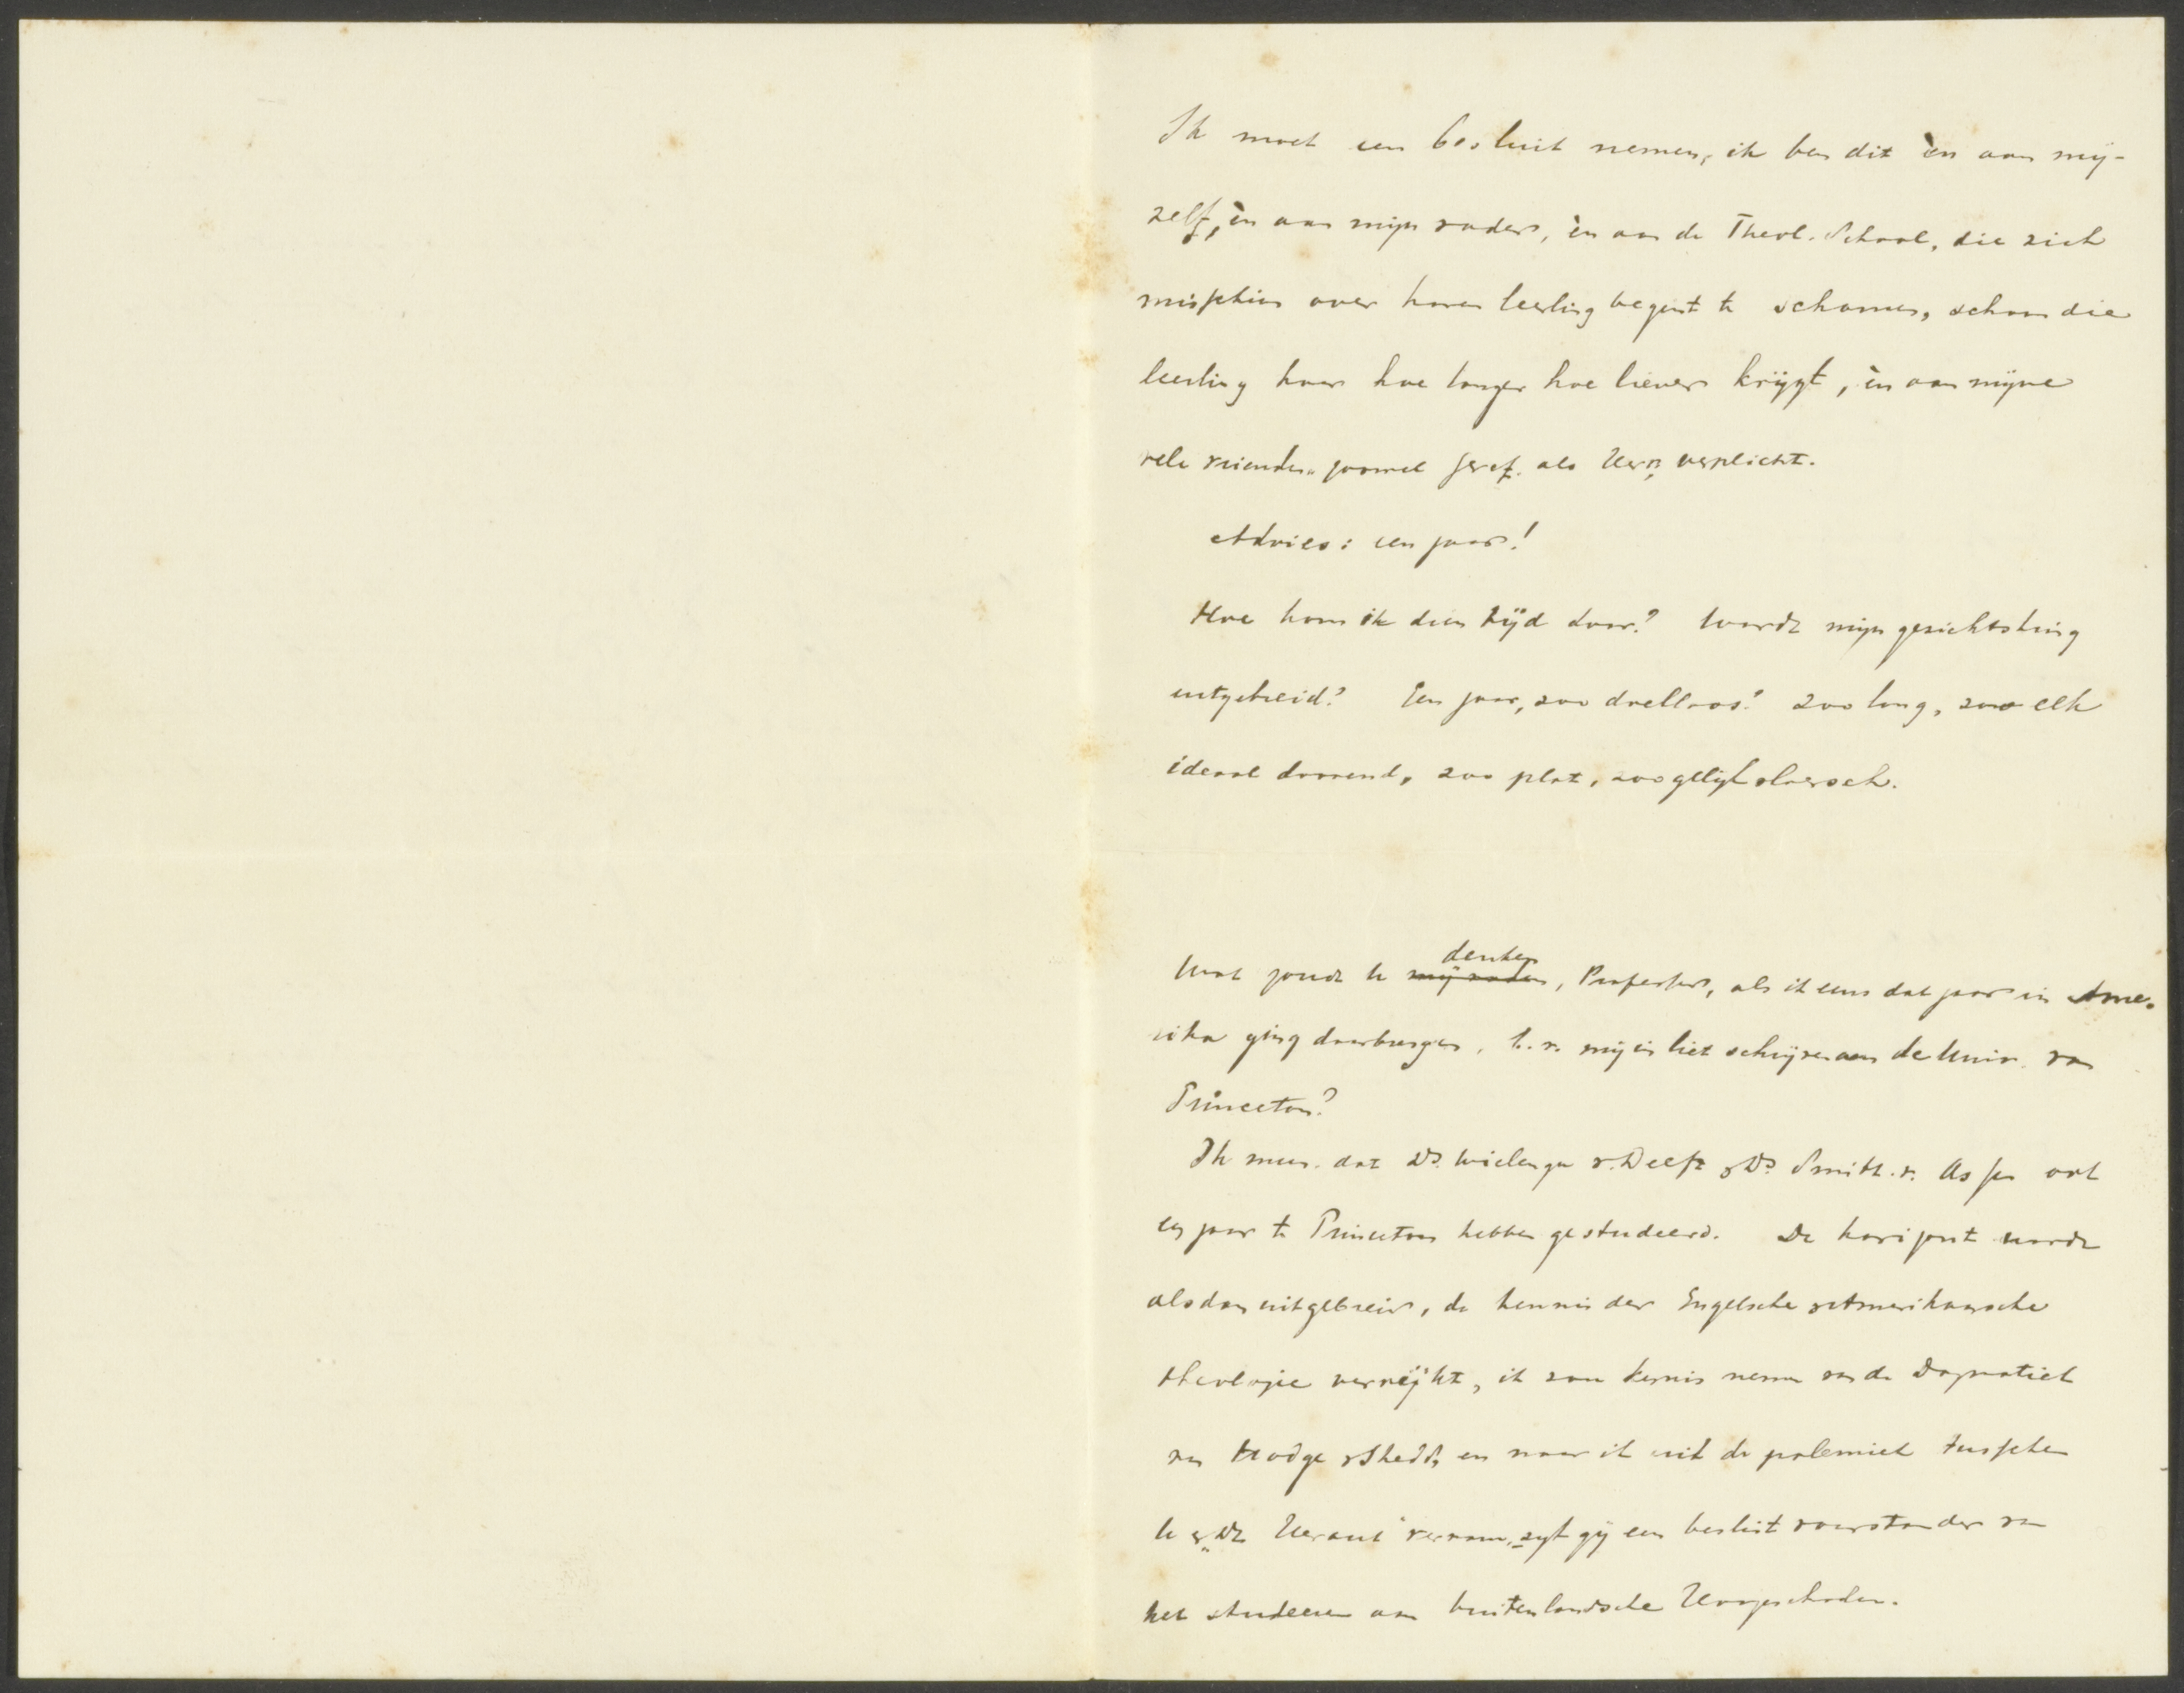 Ik moet een besluit nemen, ik ben dit èn aan mij-
zelf, èn aan mijn vader, èn aan de Theol. School, die zich
misschien over haren leerling begint te schamen, schoon die
leerling haar hoe langer hoe liever krijgt, èn aan mijne
vele vrienden, zoowel Geref. als Herv. verplicht.
Advies: een jaar!
Hoe kom ik dien tijd door? Wordt mijn gezichtskring
uitgebreid? Een jaar, zoo doelloos? zoo lang, zoo elk
ideaal doovend, zoo plat, zoo gelijkvloersch.
Wat zoudt U denken, Professor, als ik eens dat jaar in Ame-
rika ging doorbrengen, b.v. mij in liet schrijven aan de Univ. van
Princeton?
Ik meen dat Ds. Wielenga v. Delft & Ds. Smitt v. Assen ook
een jaar te Princeton hebben gestudeerd. De horizont wordt
alsdan uitgebreid, de kennis der Engelsche & Amerikaansche
theologie verrijkt, ik zou kennis nemen van de Dogmatiek
van Hodge & Shedd, en naar ik uit de polemiek tusschen
U & "De Heraut" vernam, zijt gij een beslist voorstander van
het studeeren aan buitenlandsche Hoogescholen.